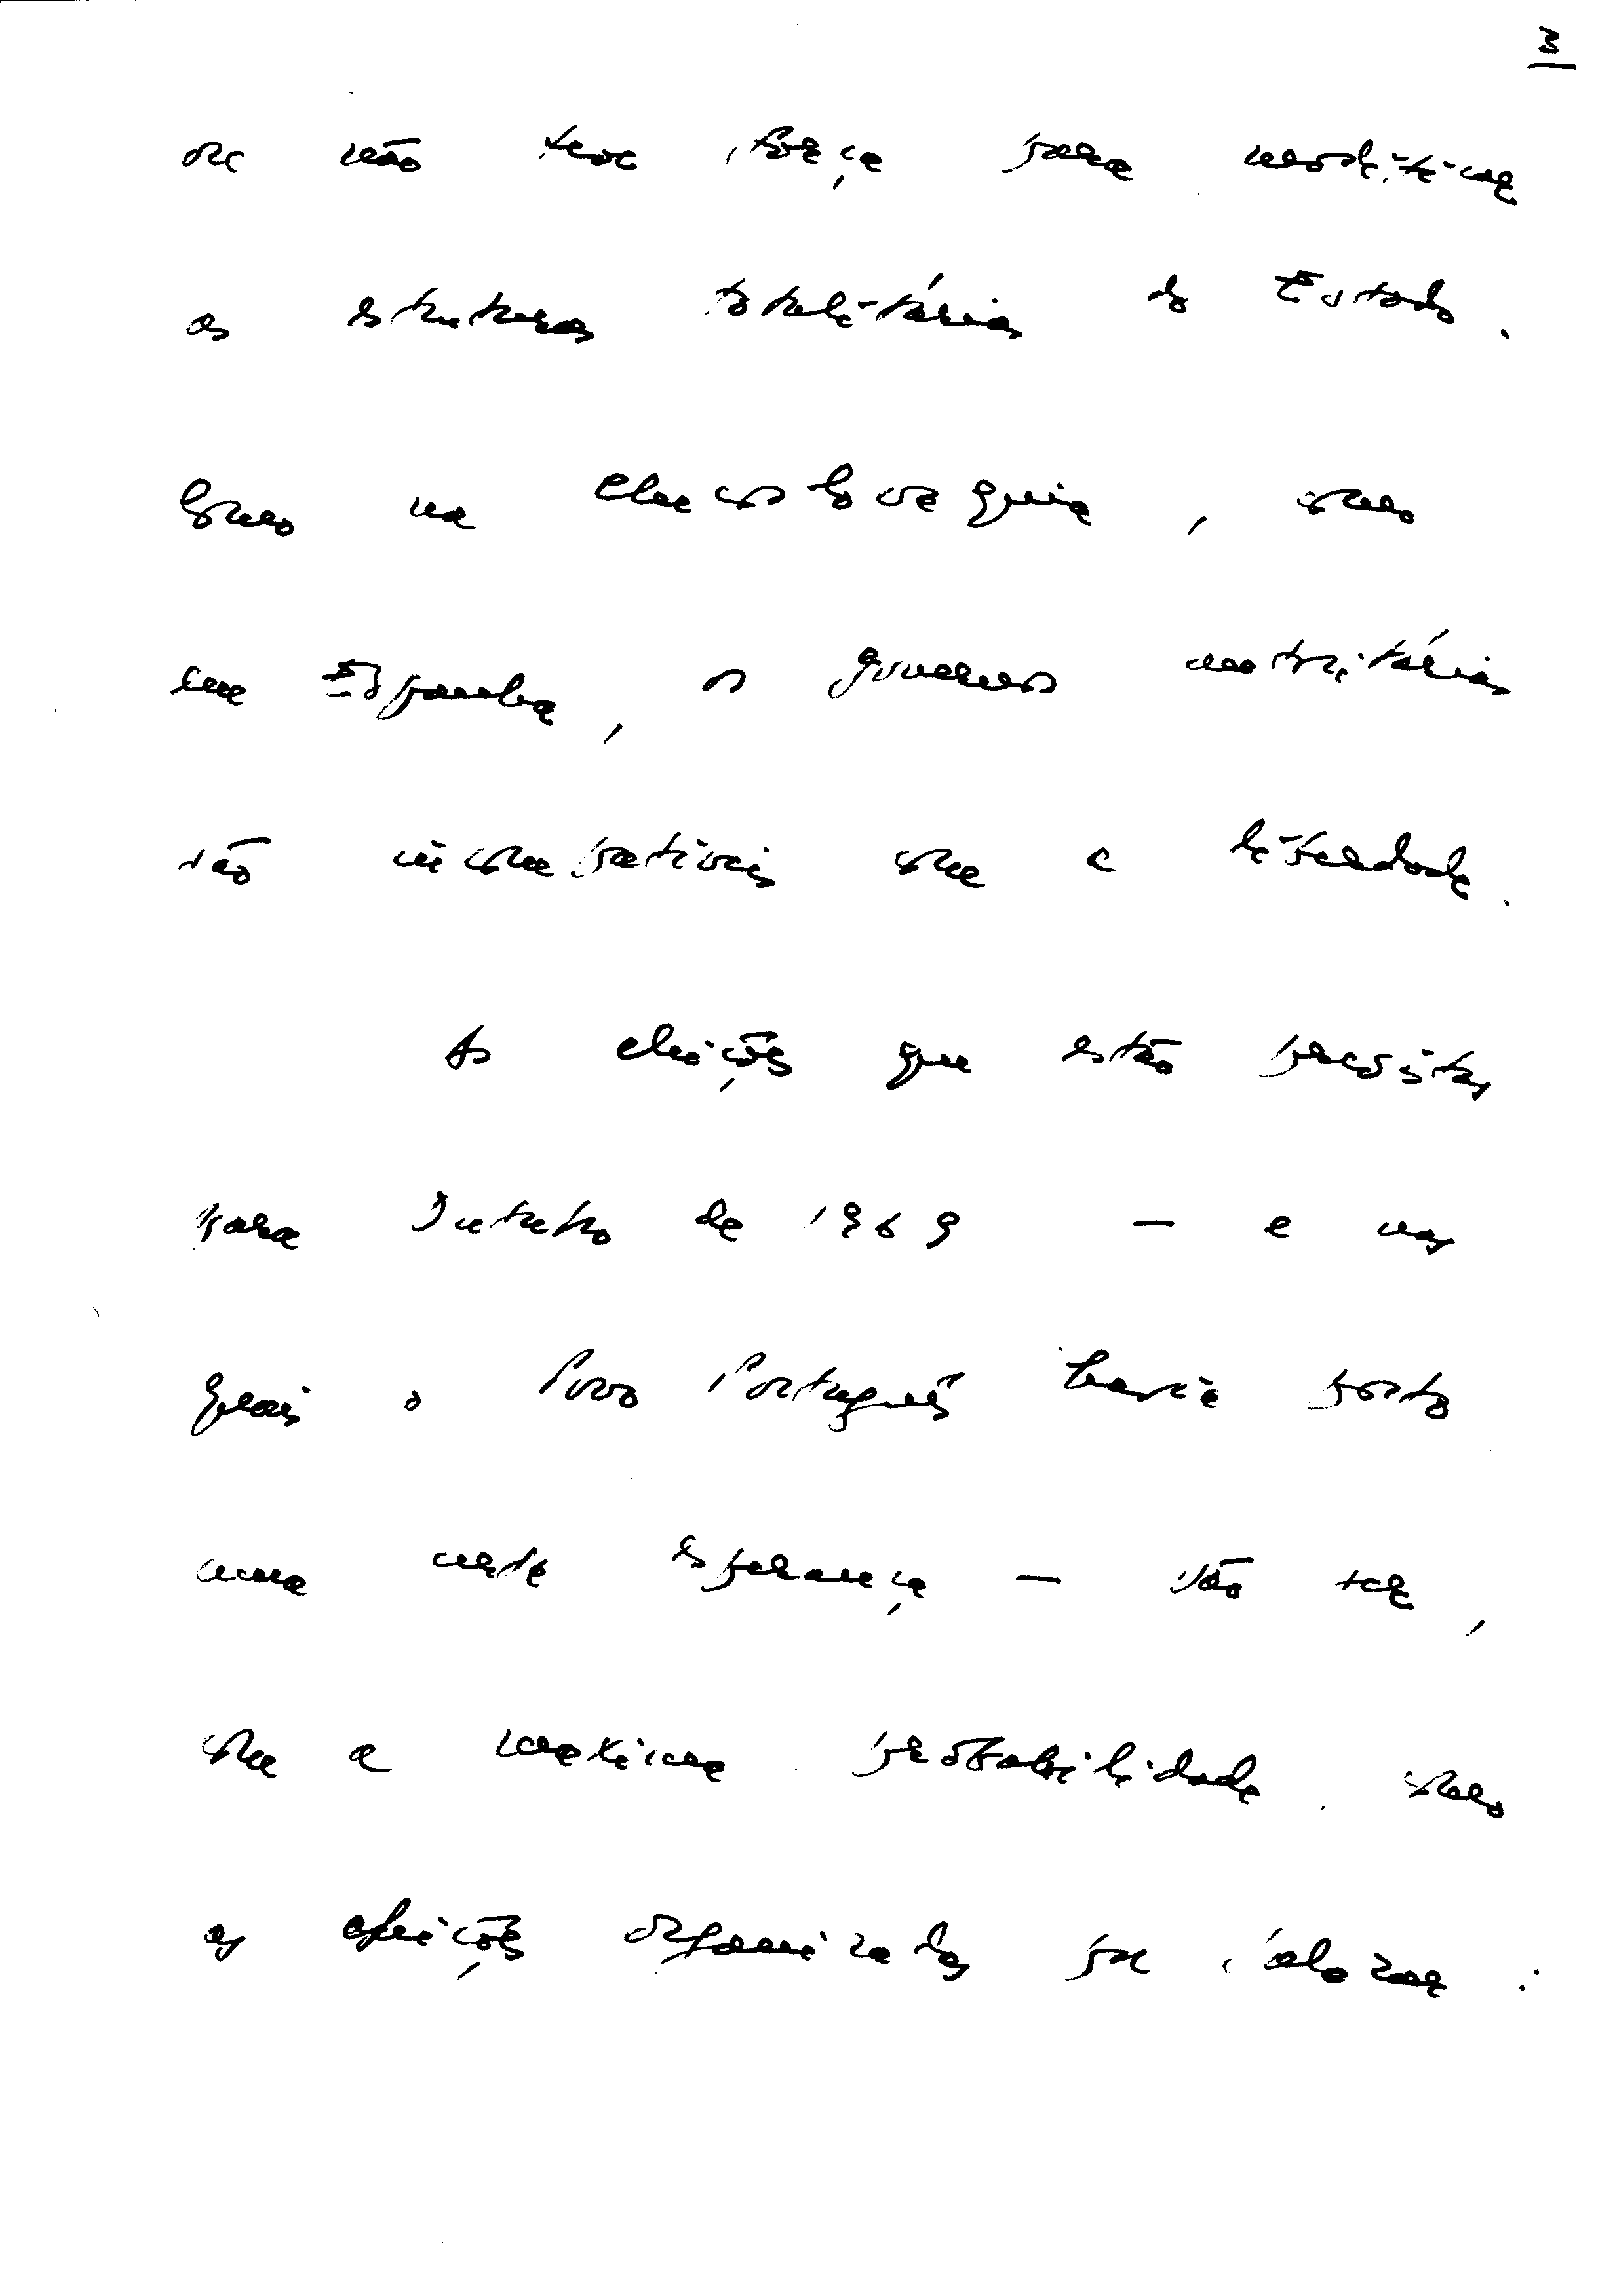 3
ou não teve força para modificar
as estruturas totalitárias do Estado.
Como na Checoslováquia, como
em Espanha, os governos autoritários
são incompatíveis com a liberdade.
As eleições que estão previstas
para Outubro de 1969 — e nas
quais o Povo Português havia posto
uma certa esperança — vão ser,
com a máxima probabilidade, como
as eleições organizadas por Salazar: